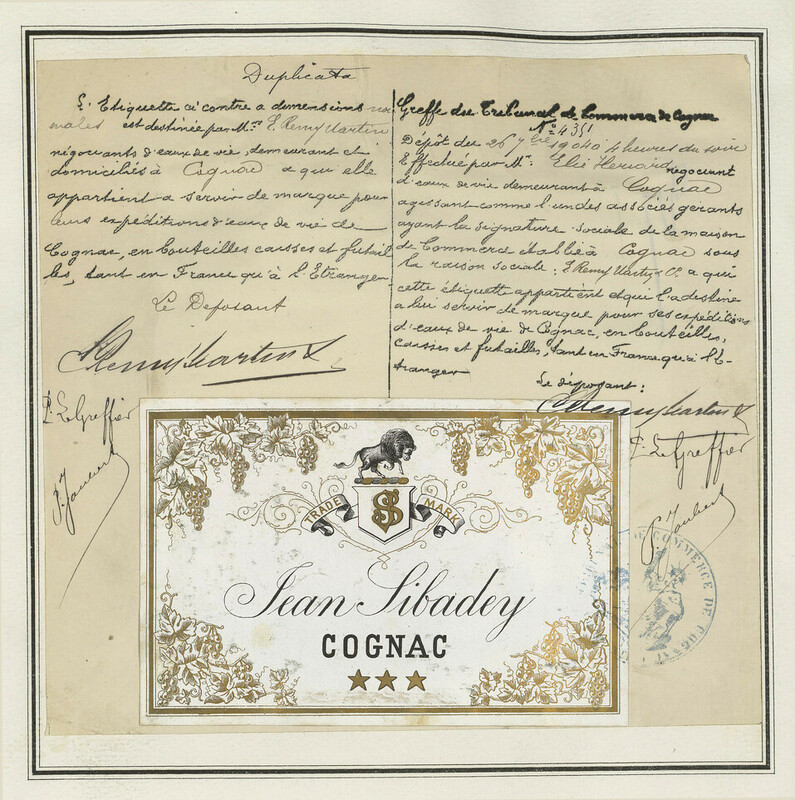 Duplicata
L'Etiquette ci contre a dimensions nor
males est destinée par Mr. E. Remy Martin
négociants d'eaux de vie, demeurant et
domiciliés à Cognac a qui elle
appartient a servir de marque pour
leurs expéditions d'eaux de vie de
Cognac, en bouteilles caisses et futail
les, tant en France qu'à l'Etranger
Le Deposant
E. Remy Martin &
P. Le Greffier
P. Joubert
Greffe du Tribunal de Commerce de Cognac
No. 4351
Dépôt du 26 7bre 1904 à 4 heures du soir
Effectué par Mr. Elie Heriard négociant
d'eaux de vie demeurant à Cognac
agissant comme l'un des associés gérants
ayant la signature sociale de la maison
de Commerce établie à Cognac sous
la raison sociale: E. Remy Martin & Co. a qui
cette étiquette appartient et qui l'a destine
a lui servir de marque pour ses expéditions
d'eaux de vie de Cognac, en bouteilles,
caisses et futailles, tant en France qu'à l'E-
tranger
Le déposant:
E. Remy Martin &
P. Le Greffier
P. Joubert
TRADE MARK
JS
Jean Sibadey
COGNAC
DE COMMERCE DE COGNAC